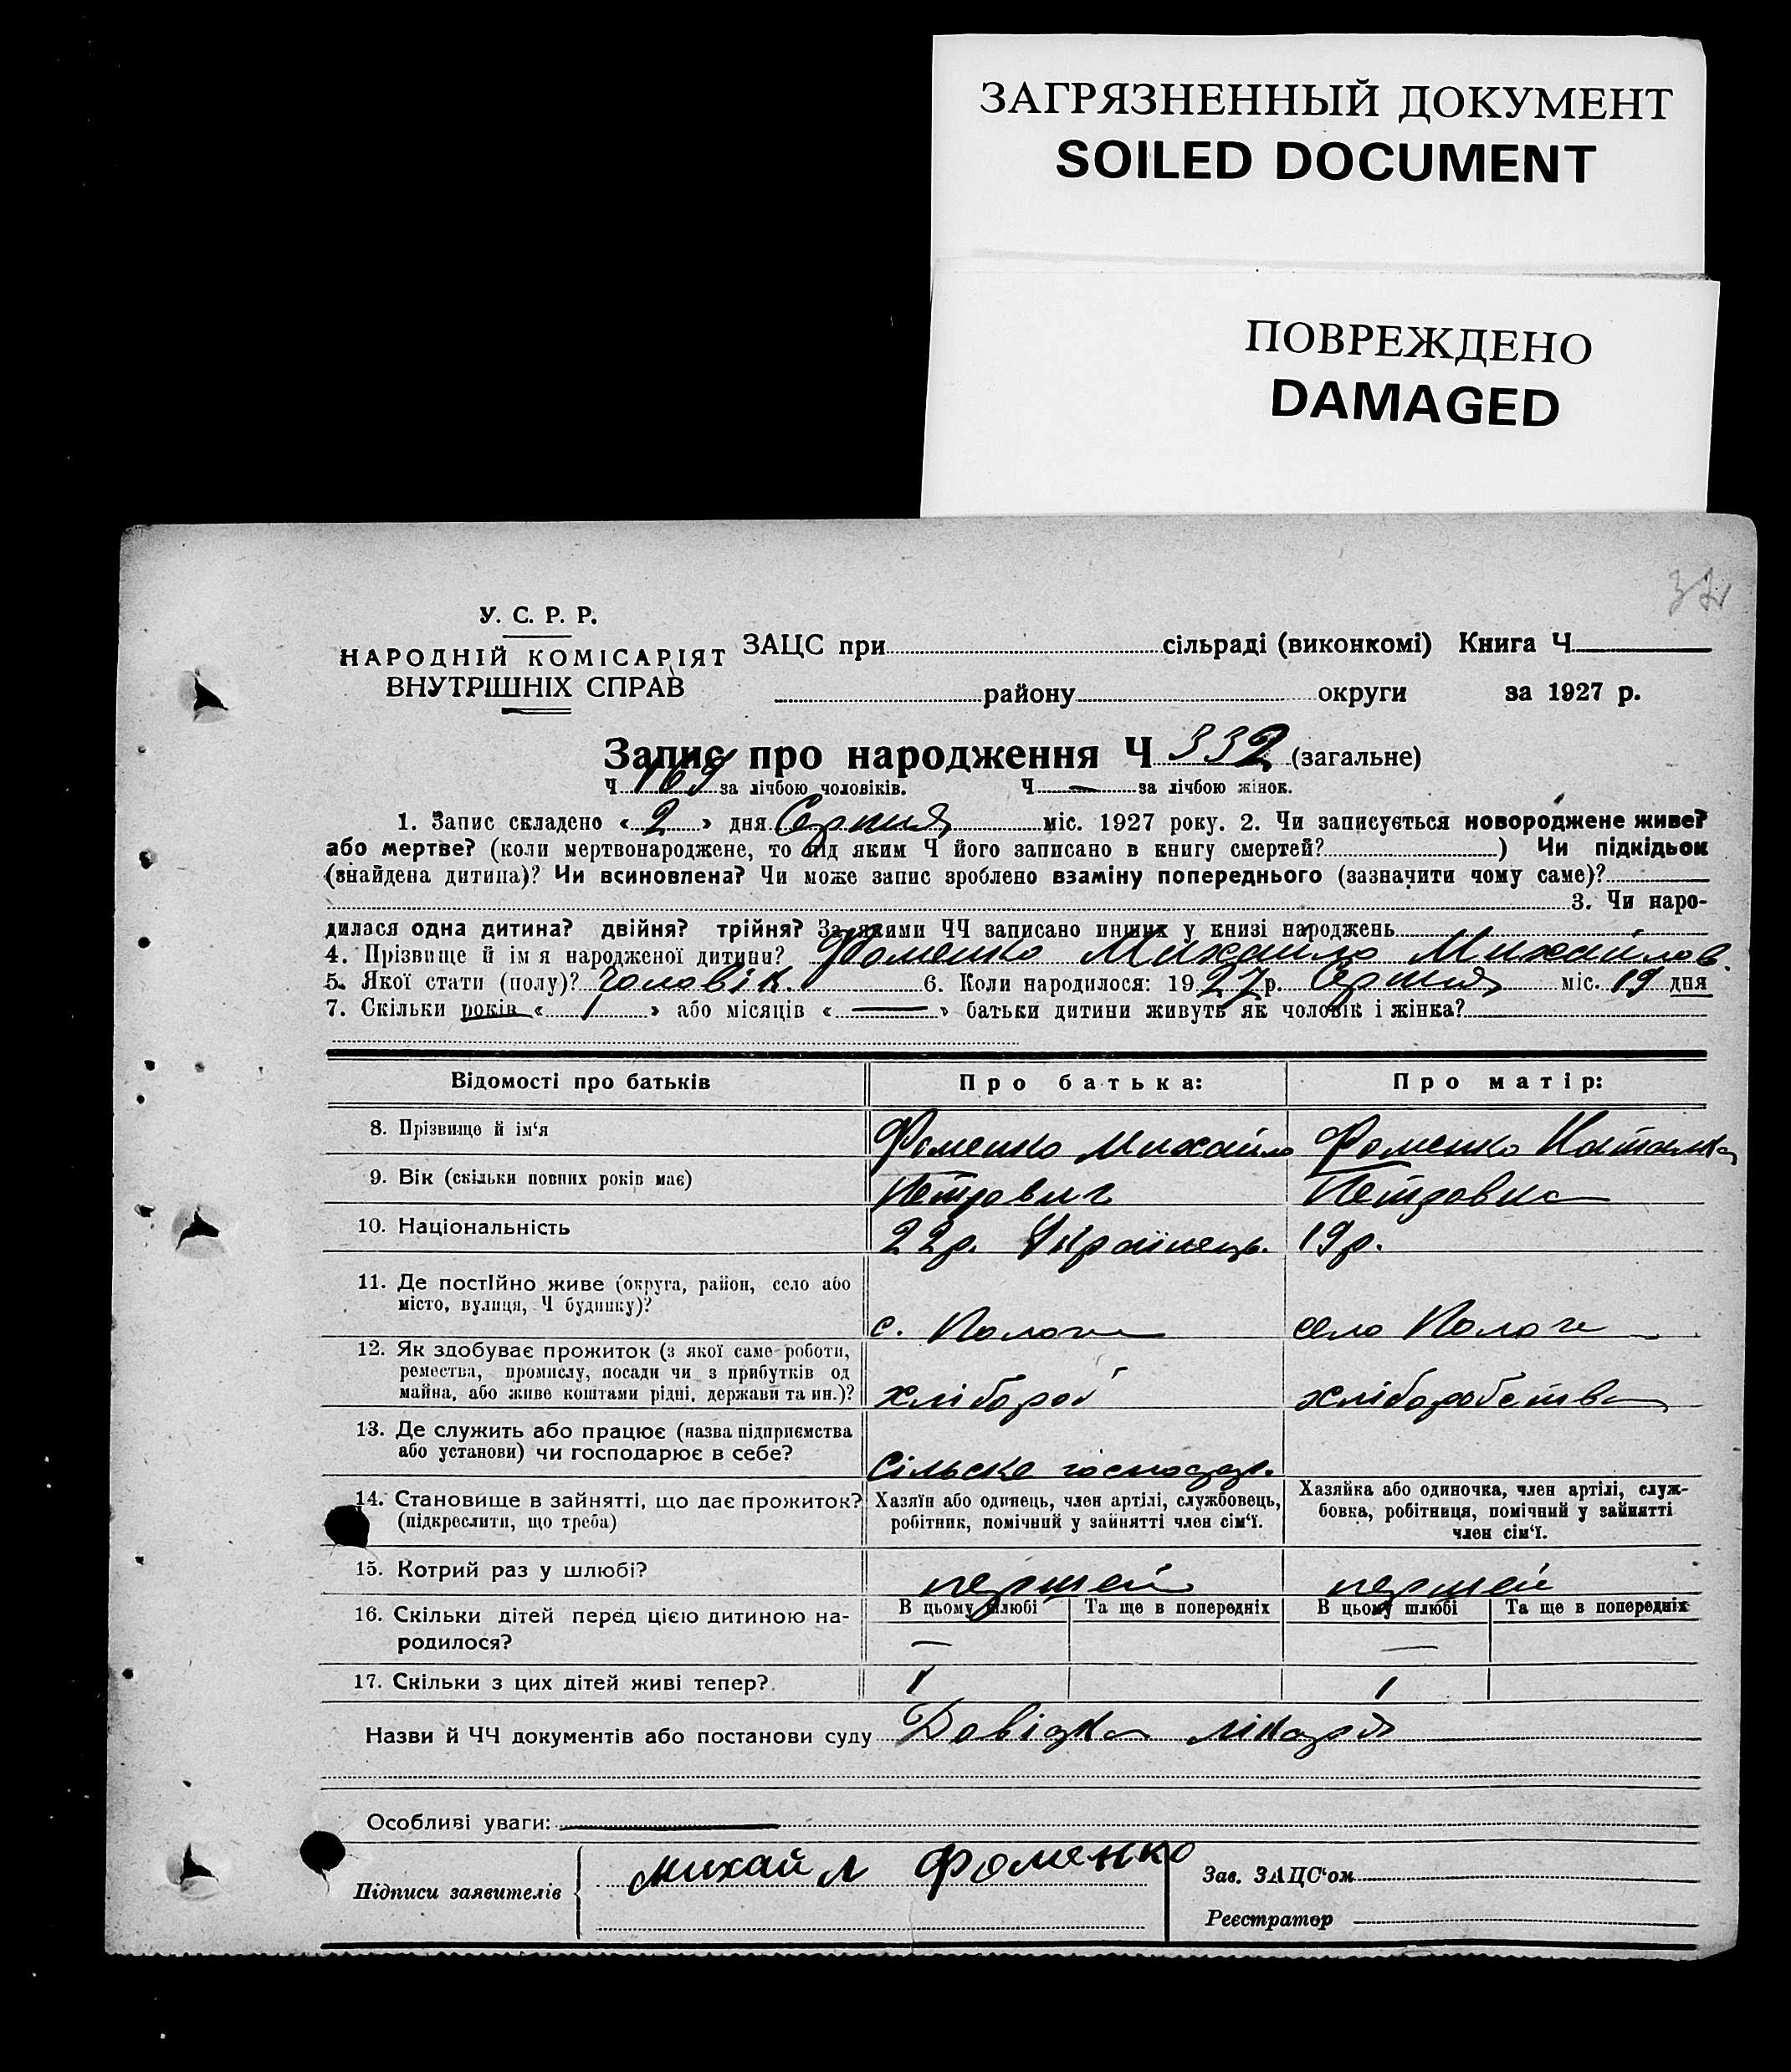 ЗАГРЯЗНЕННЫЙ ДОКУМЕНТ
SOILED DOCUMENT
ПОВРЕЖДЕНО
DAMAGED
У. С. Р. Р.
НАРОДНІЙ КОМІСАРІЯТ
ВНУТРІШНІХ СПРАВ
ЗАЦС при сільраді (виконкомі) Книга Ч
району округи за 1927 р.
Запис про народження Ч 332 (загальне)
Ч 169 за лічбою чоловіків. Ч — за лічбою жінок.
1. Запис складено « 2 » дня Серпня міс. 1927 року. 2. Чи записується новороджене живе?
або мертве? (коли мертвонароджене, то під яким Ч його записано в книгу смертей? ) Чи підкідьок
(знайдена дитина)? Чи всиновлена? Чи може запис зроблено взаміну попереднього (зазначити чому саме)?
3. Чи наро-
дилася одна дитина? двійня? трійня? За якими ЧЧ записано инших у книзі народжень
4. Прізвище й ім'я народженої дитини? Фоменко Михайло Михайлов.
5. Якої стати (полу)? Чоловік. 6. Коли народилося: 1927 р. Серпня міс. 19 дня
7. Скільки років « 1 » або місяців « — » батьки дитини живуть як чоловік і жінка?
Відомості про батьків Про батька: Про матір:
8. Прізвище й ім'я Фоменко Михайло Фоменко Наталка
9. Вік (скільки повних років має) Петрович Петровна
10. Національність 22 р. Українець. 19 р.
11. Де постійно живе (округа, район, село або
місто, вулиця, Ч будинку)? с. Пологи село Пологи
12. Як здобуває прожиток (з якої саме роботи,
ремества, промислу, посади чи з прибутків од
майна, або живе коштами рідні, держави та ин.)? хлібороб хліборобство
13. Де служить або працює (назва підприємства
або установи) чи господарює в себе? Сільске господар.
14. Становище в зайнятті, що дає прожиток?
(підкреслити, що треба)
Хазяїн або одинець, член артілі, службовець,
робітник, помічний у зайнятті член сім'ї.
Хазяйка або одиночка, член артілі, служ-
бовка, робітниця, помічний у зайнятті
член сім'ї.
15. Котрий раз у шлюбі? першей першей
16. Скільки дітей перед цією дитиною на-
родилося?
В цьому шлюбі Та ще в попередніх В цьому шлюбі Та ще в попередніх
— —
17. Скільки з цих дітей живі тепер? 1 1
Назви й ЧЧ документів або постанови суду Довідка лікаря
Особливі уваги: —
Підписи заявителів михайл Фоменко
Зав. ЗАЦС'ом
Реєстратор